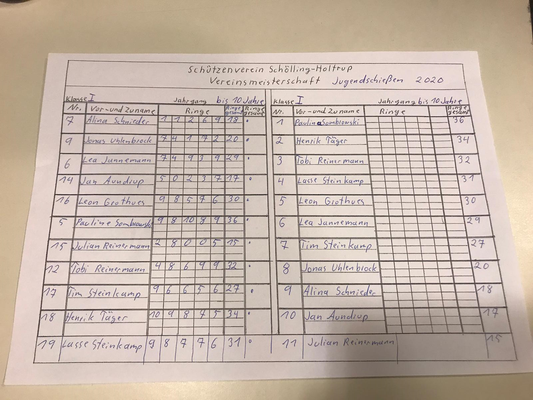 Schützenverein Schölling-Holtrup
Vereinsmeisterschaft Jugendschießen 2020
Klasse I Jahrgang bis 10 Jahre
Nr. Vor-und Zuname Ringe Ringe gesamt Ringe gesamt
7 Alina Schnieder 1 1 2 6 9 18
9 Jonas Uhlenbrock 7 4 1 7 2 20
6 Lea Jannemann 7 4 9 3 9 29
14 Jan Aundiup 5 0 2 3 7 17
16 Leon Grothues 9 8 5 7 6 30
5 Pauline Sombrowski 9 8 10 8 9 36
15 Julian Reinermann 2 8 0 0 5 15
12 Tobi Reinermann 4 8 6 9 9 32
17 Tim Steinkamp 9 6 6 5 6 27
18 Henrik Täger 10 9 8 4 5 34
19 Lasse Steinkamp 9 8 7 7 6 31
Klasse I Jahrgang bis 10 Jahre
Nr. Vor-und Zuname Ringe Ringe gesamt Ringe gesamt
1 Pauline Sombrowski 36
2 Henrik Täger 34
3 Tobi Reinermann 32
4 Lasse Steinkamp 31
5 Leon Grothues 30
6 Lea Jannemann 29
7 Tim Steinkamp 27
8 Jonas Uhlenbrock 20
9 Alina Schnieder 18
10 Jan Aundiup 17
11 Julian Reinermann 15